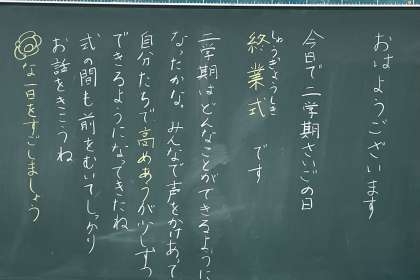 おはようございます
今日で二学期さいごの日
しゅうぎょうしき
終業式 です
二学期はどんなことができるように
なったかな。みんなで声をかけあって
自分たちで高めあうが少しずつ
できるようになってきたね
式の間も前をむいてしっかり
お話をきこうね
な一日をすごしましょう